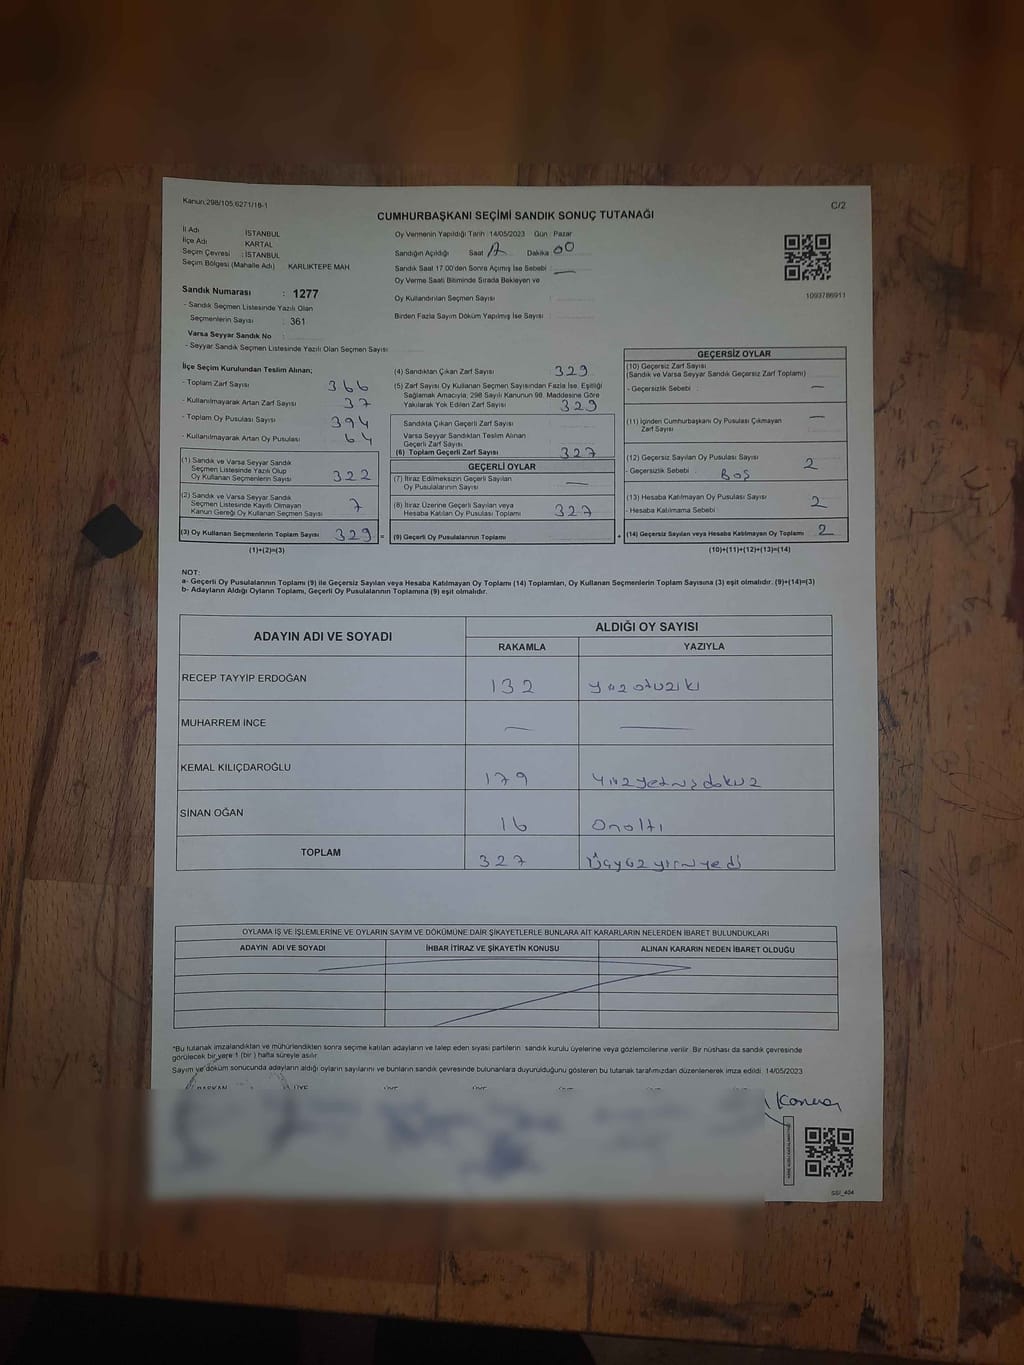 Kanun:298/105,6271/18-1
C/2
CUMHURBAŞKANI SEÇİMİ SANDIK SONUÇ TUTANAĞI
İl Adı : İSTANBUL
İlçe Adı : KARTAL
Seçim Çevresi : İSTANBUL
Seçim Bölgesi (Mahalle Adı) : KARLIKTEPE MAH
Sandık Numarası : 1277
- Sandık Seçmen Listesinde Yazılı Olan
Seçmenlerin Sayısı : 361
Varsa Seyyar Sandık No :
- Seyyar Sandık Seçmen Listesinde Yazılı Olan Seçmen Sayısı :
Oy Vermenin Yapıldığı Tarih : 14/05/2023 Gün : Pazar
Sandığın Açıldığı Saat Dakika 00
Sandık Saat 17:00'den Sonra Açılmış İse Sebebi : —
Oy Verme Saati Bitiminde Sırada Bekleyen ve
Oy Kullandırılan Seçmen Sayısı :
Birden Fazla Sayım Döküm Yapılmış İse Sayısı :
1093786911
İlçe Seçim Kurulundan Teslim Alınan;
- Toplam Zarf Sayısı 366
- Kullanılmayarak Artan Zarf Sayısı 37
- Toplam Oy Pusulası Sayısı 394
- Kullanılmayarak Artan Oy Pusulası 64
(1) Sandık ve Varsa Seyyar Sandık
Seçmen Listesinde Yazılı Olup
Oy Kullanan Seçmenlerin Sayısı 322
(2) Sandık ve Varsa Seyyar Sandık
Seçmen Listesinde Kayıtlı Olmayan
Kanun Gereği Oy Kullanan Seçmen Sayısı 7
(3) Oy Kullanan Seçmenlerin Toplam Sayısı 329 =
(1)+(2)=(3)
(4) Sandıktan Çıkan Zarf Sayısı 329
(5) Zarf Sayısı Oy Kullanan Seçmen Sayısından Fazla İse, Eşitliği
Sağlamak Amacıyla; 298 Sayılı Kanunun 98. Maddesine Göre
Yakılarak Yok Edilen Zarf Sayısı 329
Sandıkta Çıkan Geçerli Zarf Sayısı
Varsa Seyyar Sandıktan Teslim Alınan
Geçerli Zarf Sayısı
(6) Toplam Geçerli Zarf Sayısı 327
GEÇERLİ OYLAR
(7) İtiraz Edilmeksizin Geçerli Sayılan
Oy Pusulalarının Sayısı —
(8) İtiraz Üzerine Geçerli Sayılan veya
Hesaba Katılan Oy Pusulası Toplamı 327
(9) Geçerli Oy Pusulalarının Toplamı +
GEÇERSİZ OYLAR
(10) Geçersiz Zarf Sayısı
(Sandık ve Varsa Seyyar Sandık Geçersiz Zarf Toplamı)
- Geçersizlik Sebebi : —
(11) İçinden Cumhurbaşkanı Oy Pusulası Çıkmayan
Zarf Sayısı —
(12) Geçersiz Sayılan Oy Pusulası Sayısı 2
- Geçersizlik Sebebi : Boş
(13) Hesaba Katılmayan Oy Pusulası Sayısı 2
- Hesaba Katılmama Sebebi :
(14) Geçersiz Sayılan veya Hesaba Katılmayan Oy Toplamı 2
(10)+(11)+(12)+(13)=(14)
NOT:
a- Geçerli Oy Pusulalarının Toplamı (9) ile Geçersiz Sayılan veya Hesaba Katılmayan Oy Toplamı (14) Toplamları, Oy Kullanan Seçmenlerin Toplam Sayısına (3) eşit olmalıdır. (9)+(14)=(3)
b- Adayların Aldığı Oyların Toplamı, Geçerli Oy Pusulalarının Toplamına (9) eşit olmalıdır.
ADAYIN ADI VE SOYADI
ALDIĞI OY SAYISI
RAKAMLA YAZIYLA
RECEP TAYYİP ERDOĞAN 132 yüzotuziki
MUHARREM İNCE — —
KEMAL KILIÇDAROĞLU 179 yüzyetmişdokuz
SİNAN OĞAN 16 Onaltı
TOPLAM 327 Üçyüzyirmiyedi
OYLAMA İŞ VE İŞLEMLERİNE VE OYLARIN SAYIM VE DÖKÜMÜNE DAİR ŞİKAYETLERLE BUNLARA AİT KARARLARIN NELERDEN İBARET BULUNDUKLARI
ADAYIN ADI VE SOYADI İHBAR İTİRAZ VE ŞİKAYETİN KONUSU ALINAN KARARIN NEDEN İBARET OLDUĞU
*Bu tutanak imzalandıktan ve mühürlendikten sonra seçime katılan adayların ve talep eden siyasi partilerin sandık kurulu üyelerine veya gözlemcilerine verilir. Bir nüshası da sandık çevresinde
görülecek bir yere 1 (bir ) hafta süreyle asılır.
Sayım ve döküm sonucunda adayların aldığı oyların sayılarını ve bunların sandık çevresinde bulunanlara duyurulduğunu gösteren bu tutanak tarafımızdan düzenlenerek imza edildi. 14/05/2023
BAŞKAN ÜYE ÜYE ÜYE ÜYE
SSI_404